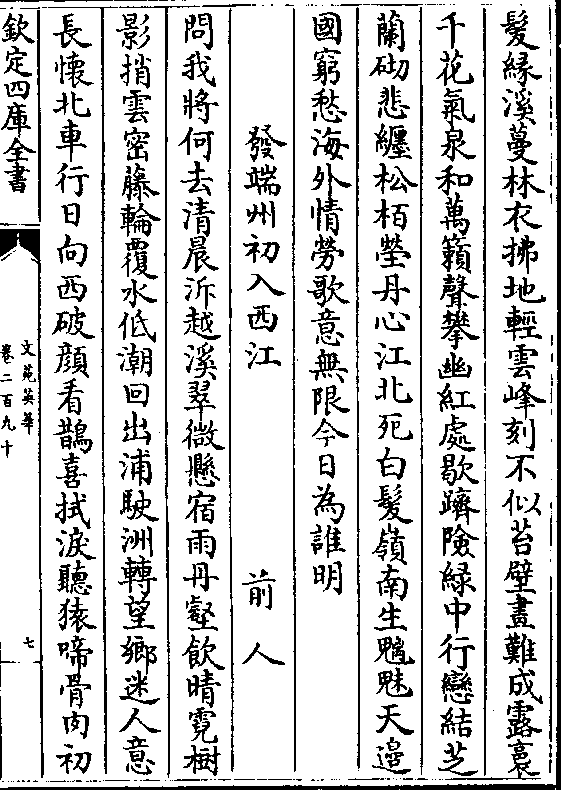 髮緣溪蔓林衣拂地輕雲峰刻不似苔壁畫難成露裛
千花氣泉和萬籟聲攀幽紅處歇躋險緑中行戀結芝
蘭砌悲纏松栢塋丹心江北死白髮嶺南生魑魅天邊
國窮愁海外情勞歌意無限今日為誰明
發端州初入西江 前人
問我將何去清晨泝越溪翠微懸宿雨丹壑飲晴霓樹
影捎雲密藤輪覆水低潮回出浦駛洲轉望鄉迷人意
長懷北車行日向西破顔看鵲喜拭淚聽猿啼骨肉初
欽定四庫全書
文苑英華
卷二百九十
七